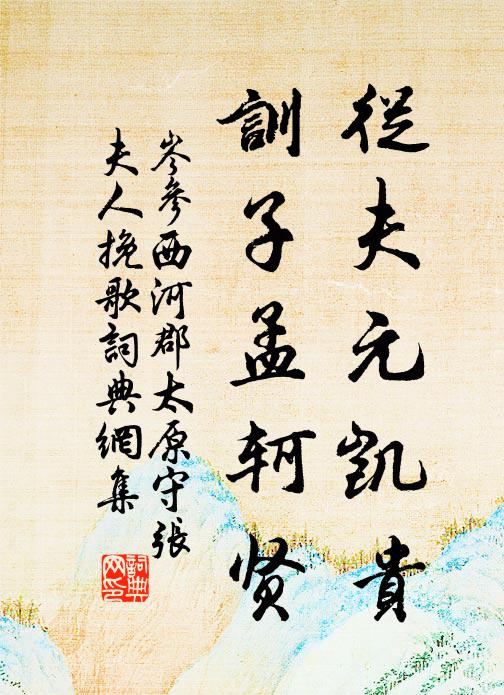 從夫元凱貴
訓子孟軻贤
岑參西河郡太原守張
夫人挽歌詞典網集
詞典
网印